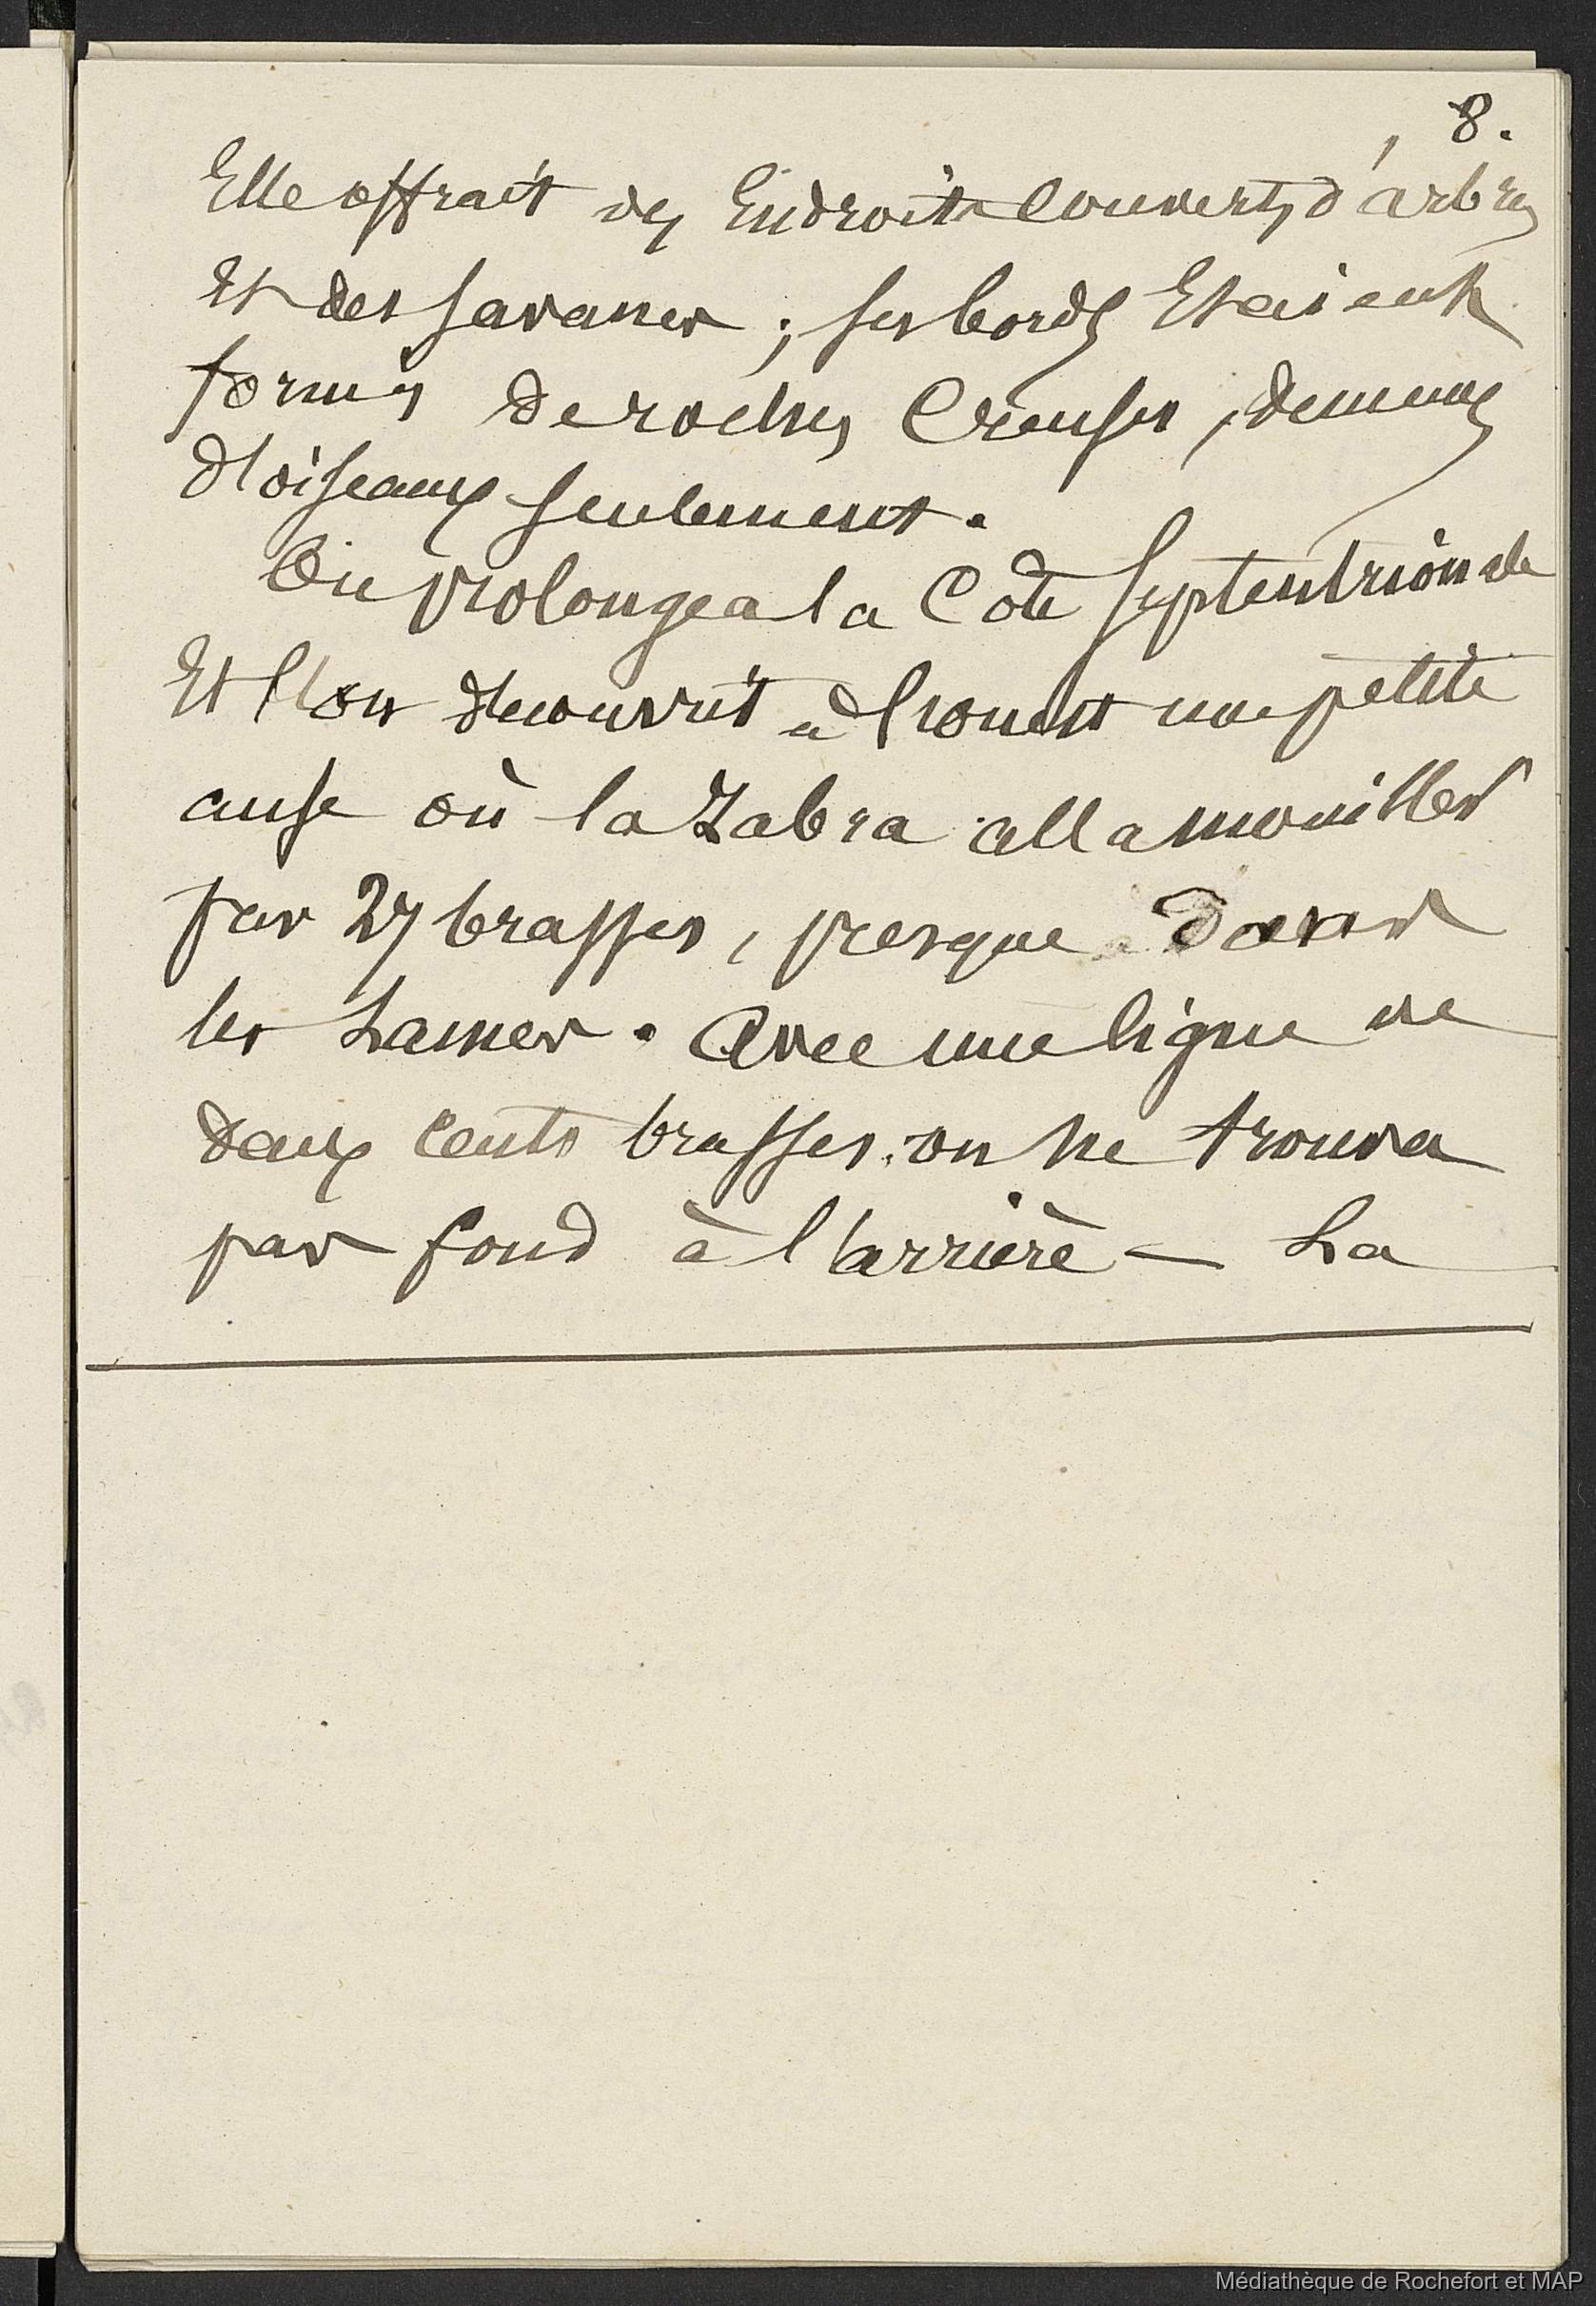 8.
Elle offrait des Endroits Couverts, d'arbres
Et des savanes ; ses bords Etaient
formés de roches Creuses, demeures
d'oiseaux seulement.
On prolongea la Côte Septentrionale
Et l'on découvrit à l'ouest une petite
anse où la Zabra alla mouiller
par 27 brasses, presque dans
les Lames. Avec une ligne de
deux cents brasses, on ne trouva
pas fond à l'arrière - La
Médiathèque de Rochefort et MAP